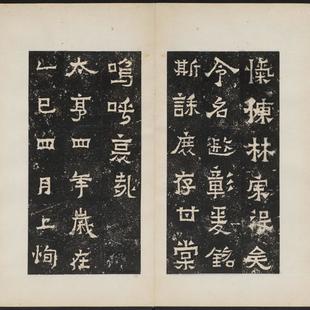 愾慷林宗没矣
令名遐彰爰銘
斯誄庶存甘棠
嗚呼哀哉
太亨四年歲在
乙巳四月上恂